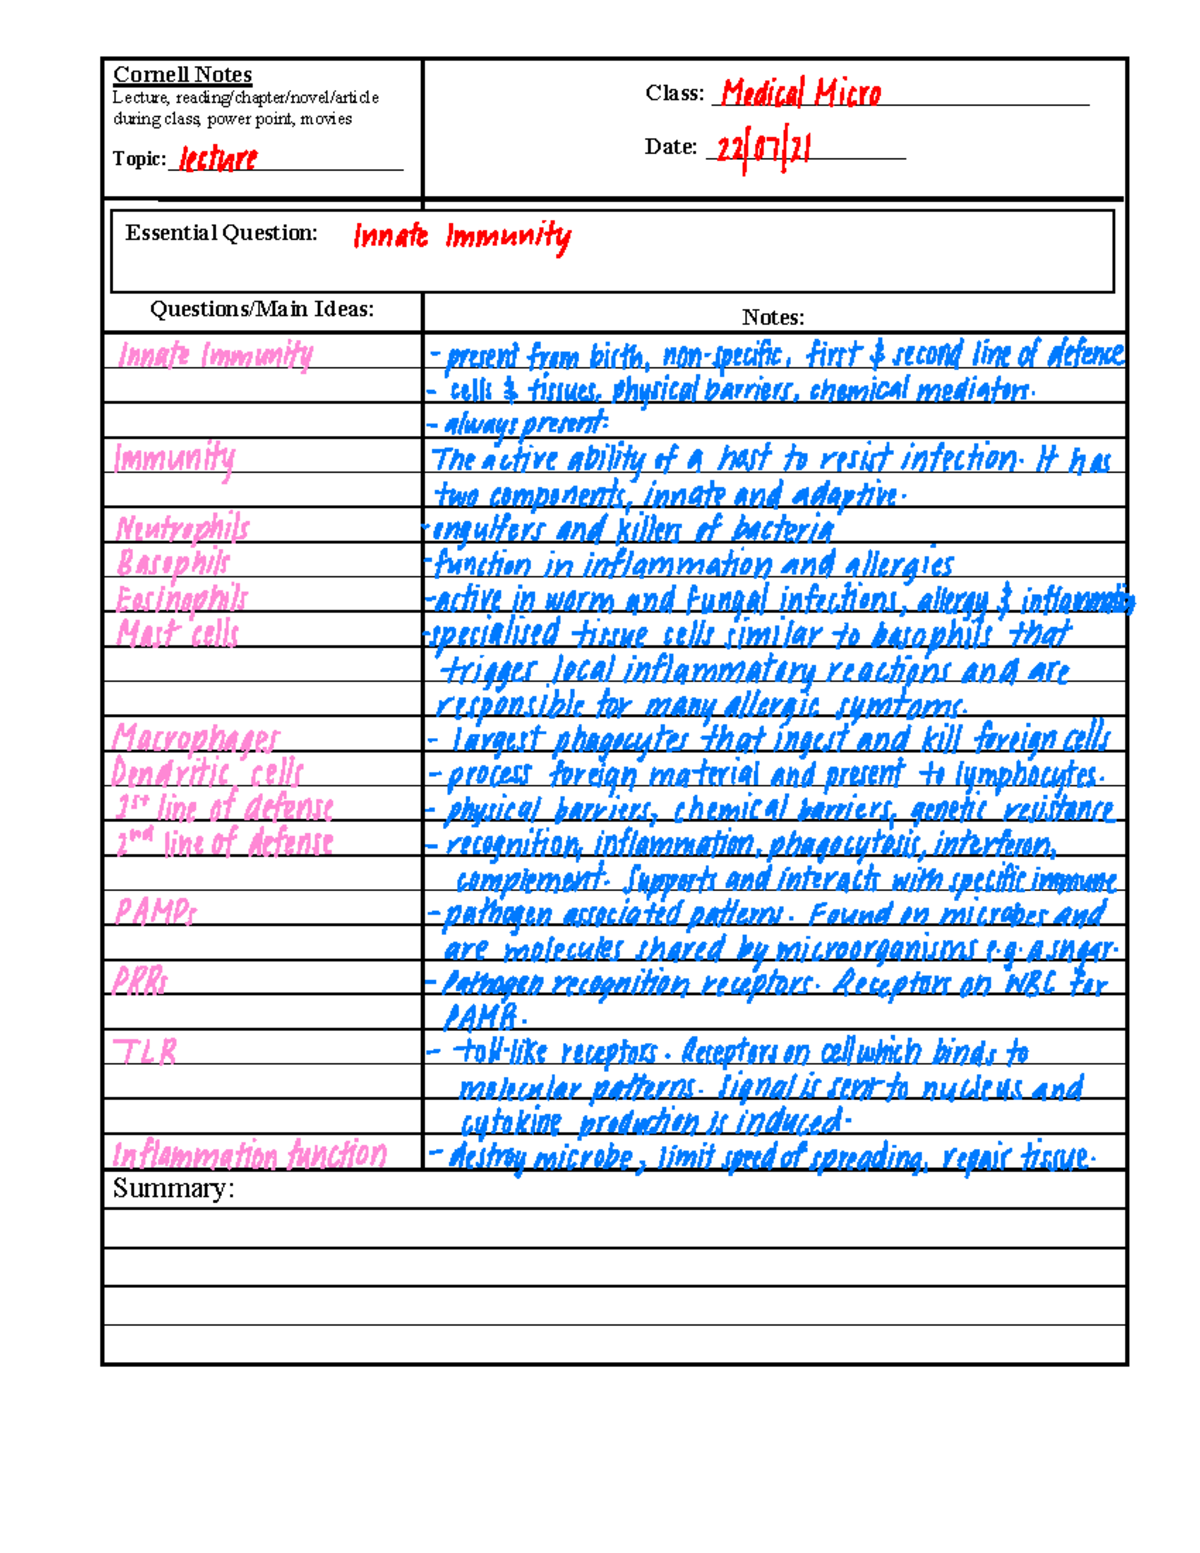 Cornell Notes
Lecture, reading/chapter/novel/article
during class, power point, movies
Topic: lecture
Class: Medical Micro
Date: 22/07/21
Essential Question: Innate Immunity
Questions/Main Ideas:
Notes:
Innate Immunity
- present from birth, non-specific, first & second line of defence
- cells & tissues, physical barriers, chemical mediators.
- always present.
Immunity
The active ability of a host to resist infection. It has
two components, innate and adaptive.
Neutrophils
- engulfers and killers of bacteria
Basophils
- function in inflammation and allergies
Eosinophils
- active in worm and fungal infections, allergy & inflammation
Mast cells
- specialised tissue cells similar to basophils that
trigger local inflammatory reactions and are
responsible for many allergic symtoms.
Macrophages
- largest phagocytes that ingest and kill foreign cells
Dendritic cells
- process foreign material and present to lymphocytes.
1st line of defense
- physical barriers, chemical barriers, genetic resistance
2nd line of defense
- recognition, inflammation, phagocytosis, interferon,
complement. Supports and interacts with specific immune
PAMPs
- pathogen associated patterns. Found on microbes and
are molecules shared by microorganisms e.g. a sugar.
PRRs
- Pathogen recognition receptors. Receptors on WBC for
PAMPs.
TLR
- toll-like receptors. Receptors on cell which binds to
molecular patterns. Signal is sent to nucleus and
cytokine production is induced.
Inflammation function
- destroy microbe, limit speed of spreading, repair tissue.
Summary: